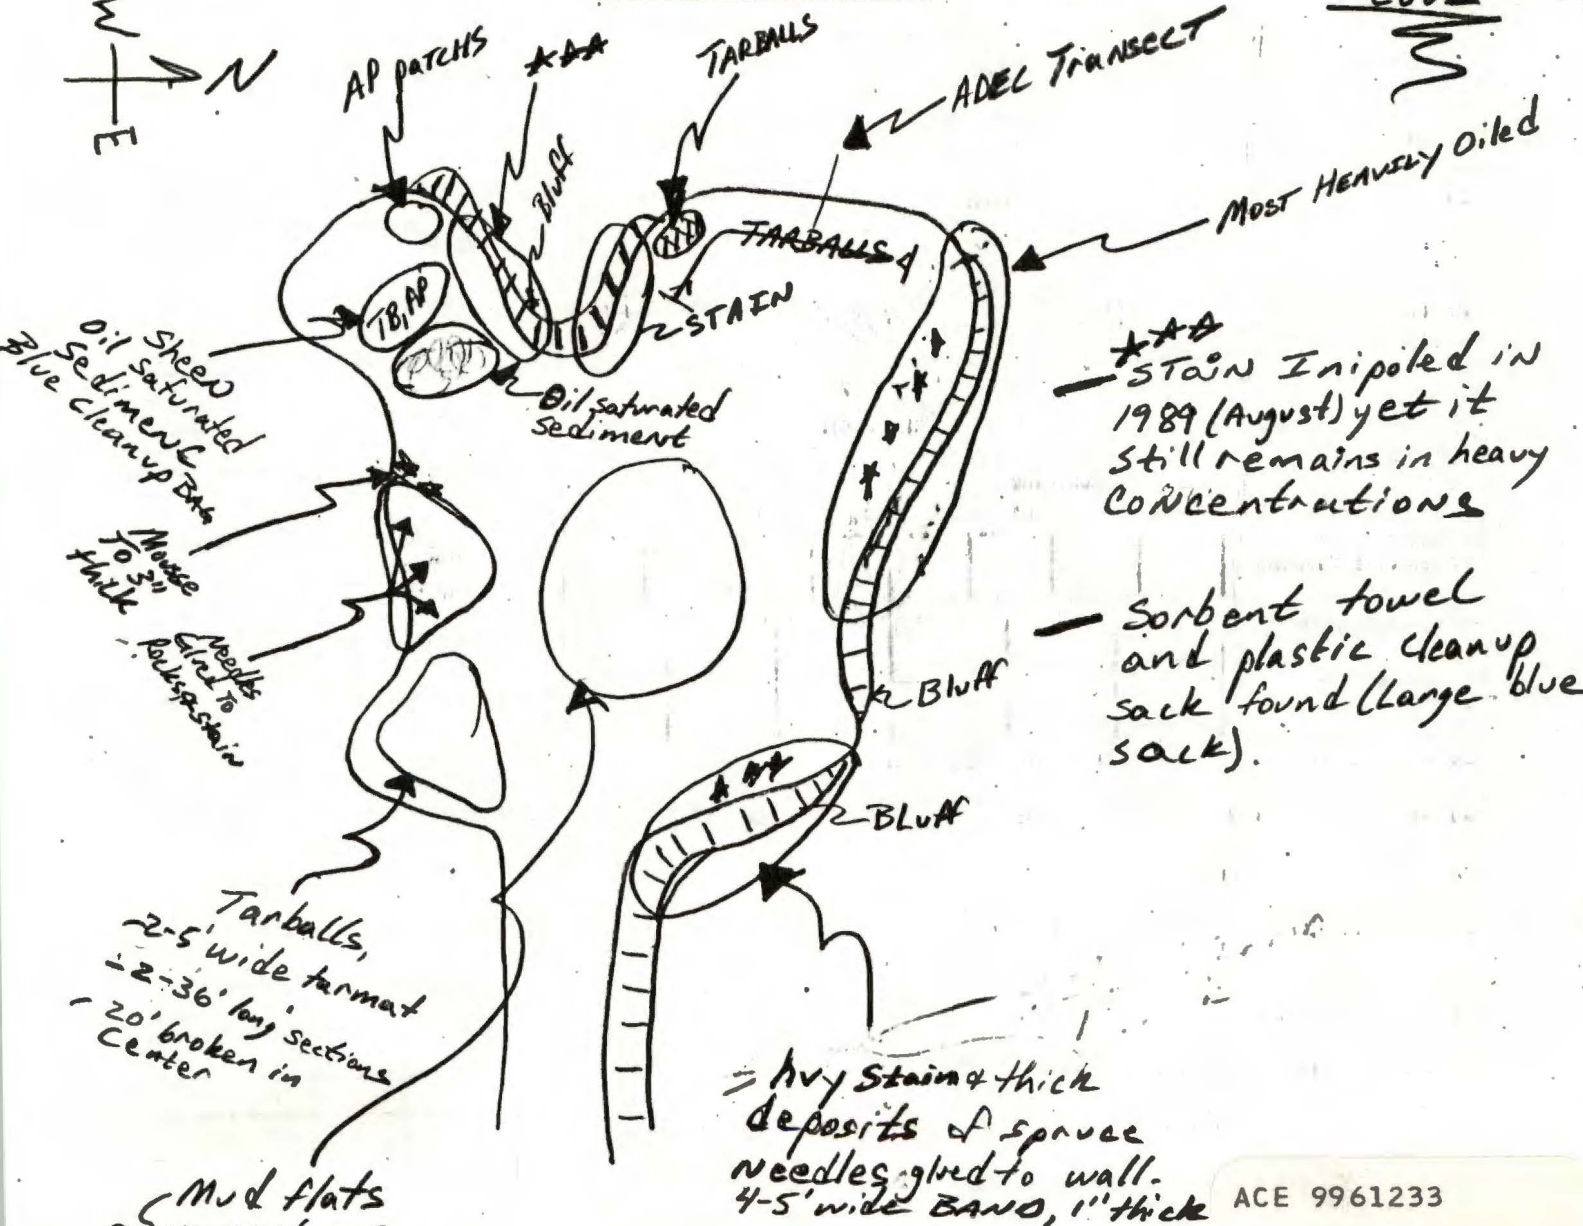 W
N
E
AP patchs
★★★
TARBALLS
ADEC Transect
Most Heavily Oiled
Bluff
TARBALLS
STAIN
TB, AP
Oil saturated
sediment
Sheen
Oil saturated
Sediment
Blue Cleanup BAG
Mousse
To 3"
thick
Needles
Glued To
Rocks & stain
★★★
— STAIN Inipoled in
1989 (August) yet it
Still remains in heavy
Concentrations
— Sorbent towel
and plastic cleanup
sack found (Large blue
sack).
Bluff
BLuff
Tarballs,
-2-5' wide tarmat
-2-36' long sections
- 20' broken in
Center
= hvy Stain & thick
deposits of spruce
Needles glued to wall.
4-5' wide BAND, 1" thick
Mud flats
ACE 9961233